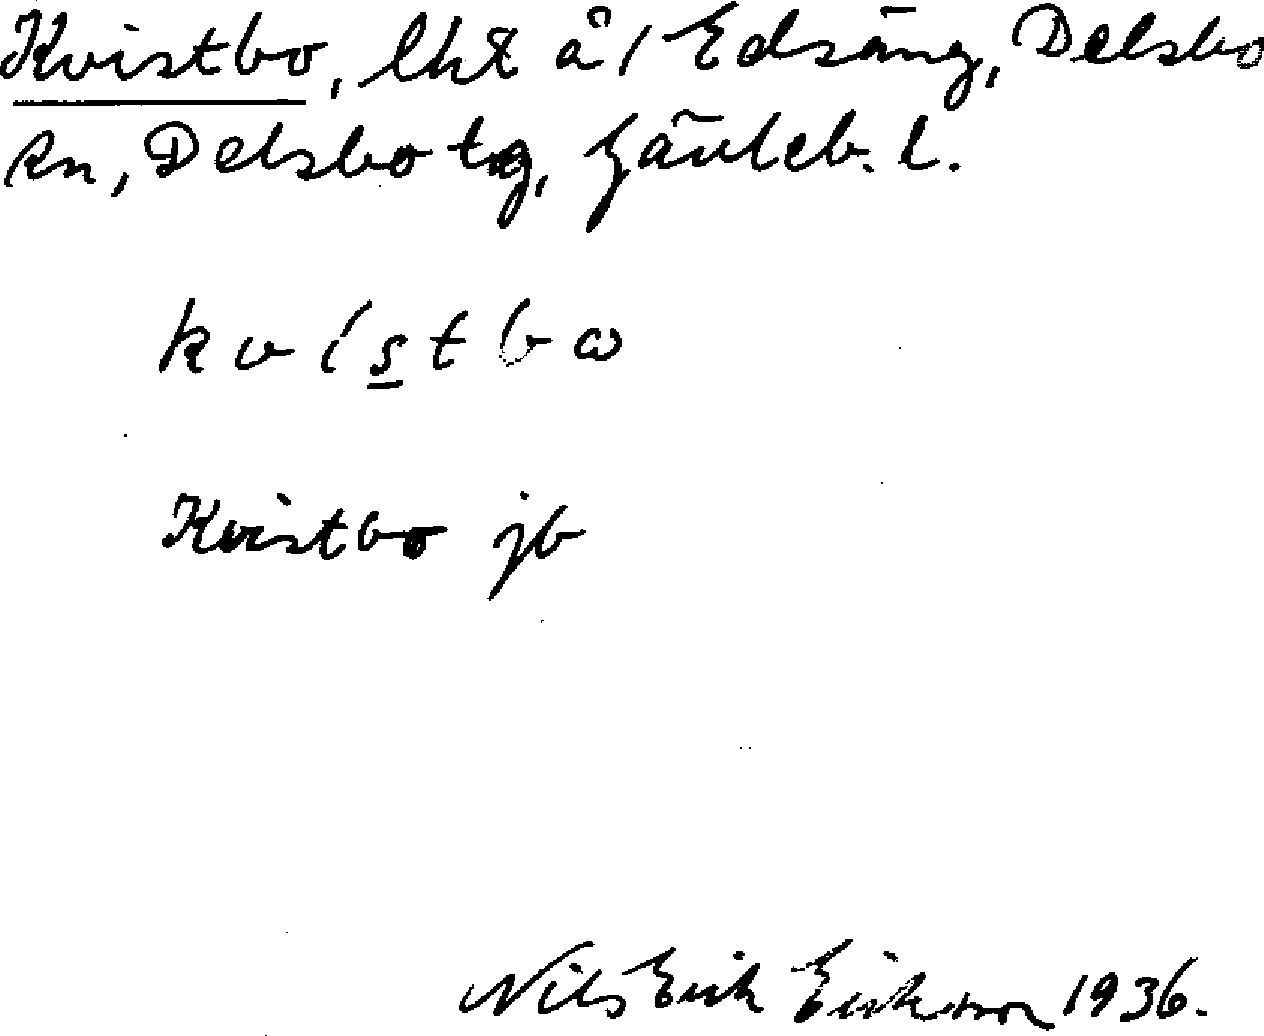 Kvistbo, lht å 1 Edsäng, Delsbo
sn, Delsbo tg, Gävleb. l.
kvistbω
Kvistbo jb
Nils Erik Eriksson 1936.